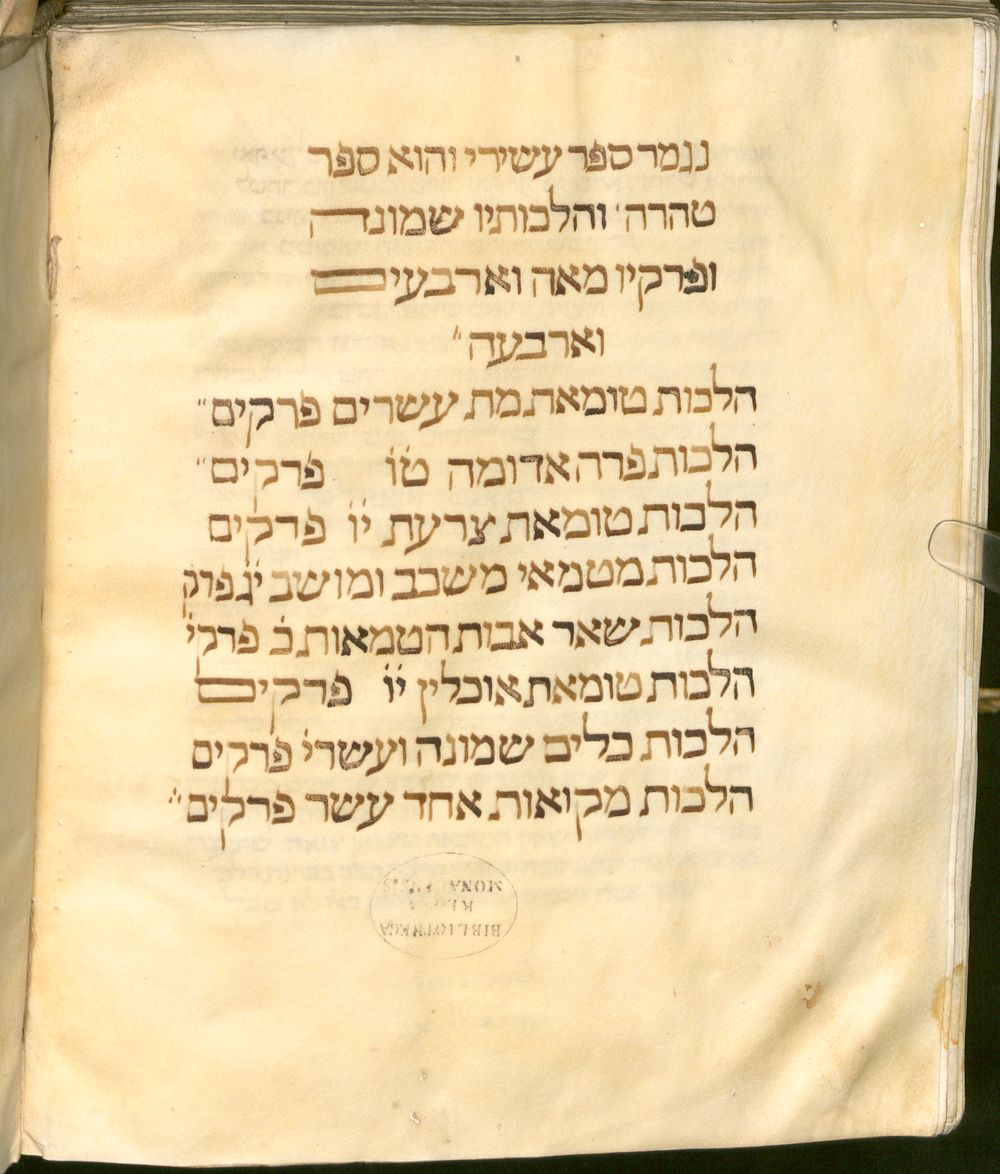 נגמר ספר עשירי והוא ספר
טהרה׳ והלכותיו שמונה
ופרקיו מאה וארבעים
וארבעה״
הלכות טומאת מת עשרים פרקים״
הלכות פרה אדומה ט׳ו׳ פרקים״
הלכות טומאת צרעת י׳ו׳ פרקים
הלכות מטמאי משכב ומושב י׳ג׳ פרק
הלכות שאר אבות הטמאות כ׳ פרקי׳
הלכות טומאת אוכלין י׳ו׳ פרקים
הלכות כלים שמונה ועשרי׳ פרקים
הלכות מקואות אחד עשר פרקים״
BIBLIOTHECA
MONACENSIS